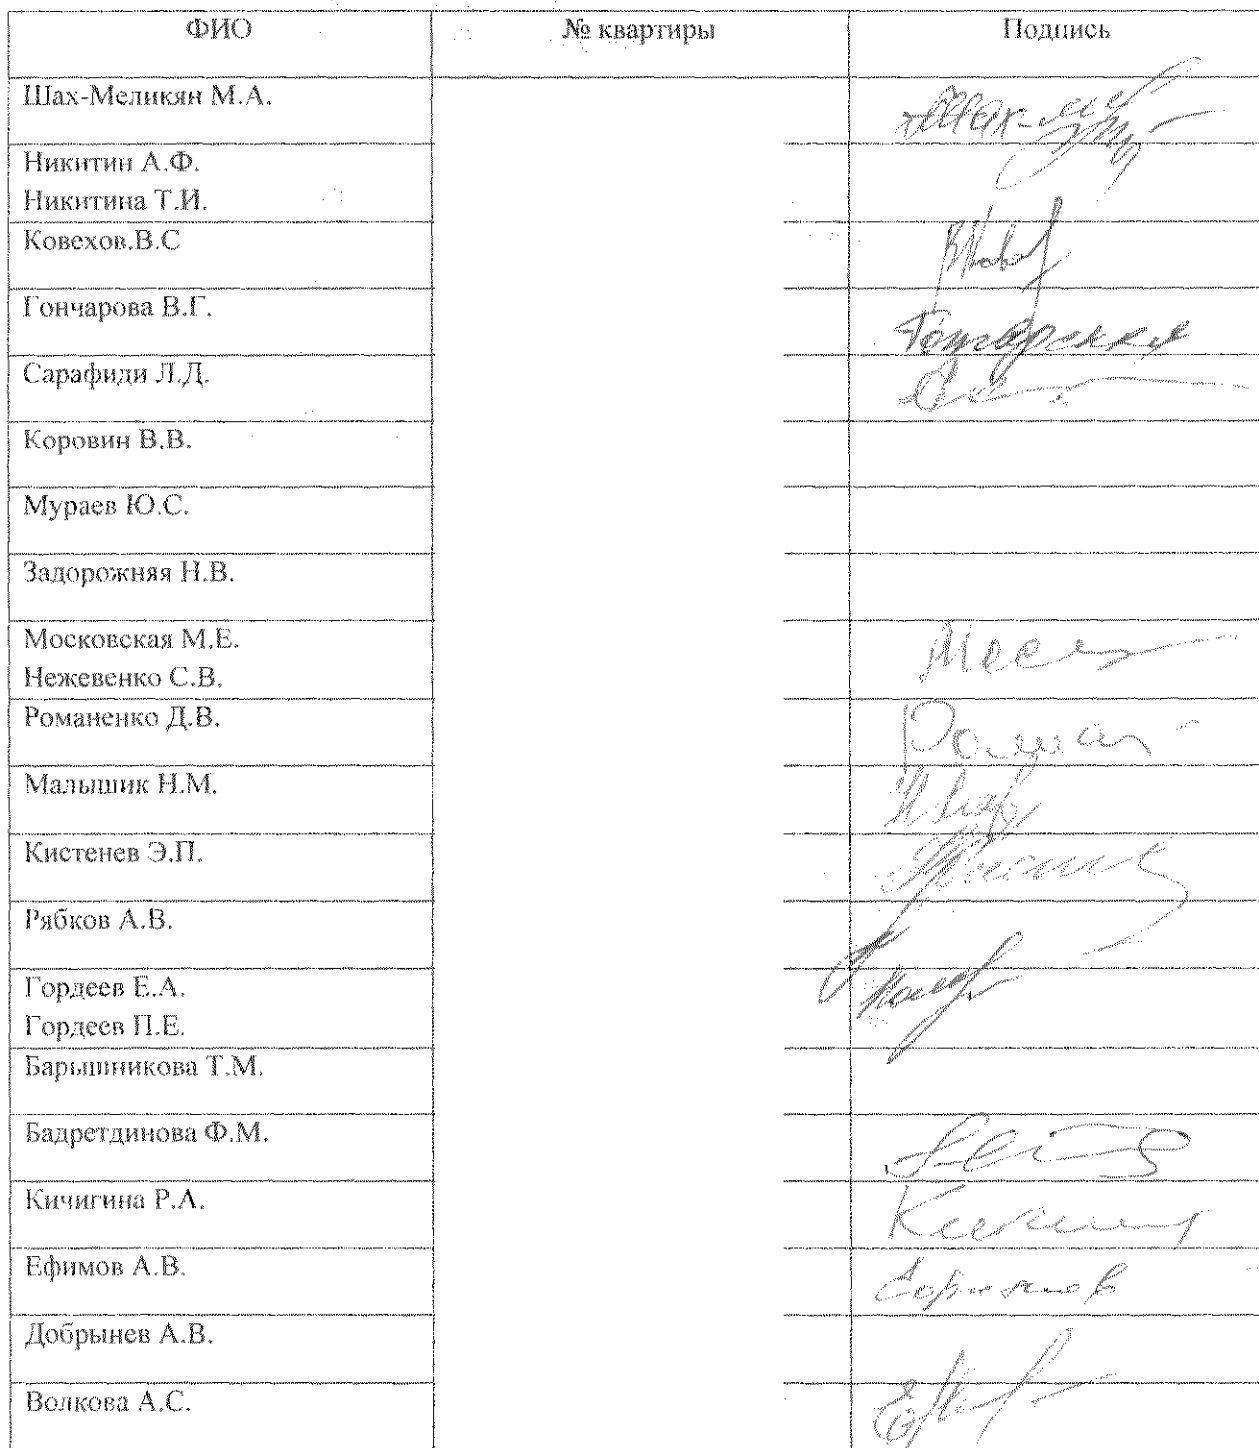 ФИО № квартиры Подпись
Шах-Меликян М.А.
Никитин А.Ф.
Никитина Т.И.
Ковехов.В.С
Гончарова В.Г.
Сарафиди Л.Д.
Коровин В.В.
Мураев Ю.С.
Задорожняя Н.В.
Московская М.Е.
Нежевенко С.В.
Романенко Д.В.
Малышик Н.М.
Кистенев Э.П.
Рябков А.В.
Гордеев Е.А.
Гордеев П.Е.
Барышникова Т.М.
Бадретдинова Ф.М.
Кичигина Р.А.
Ефимов А.В.
Добрынев А.В.
Волкова А.С.